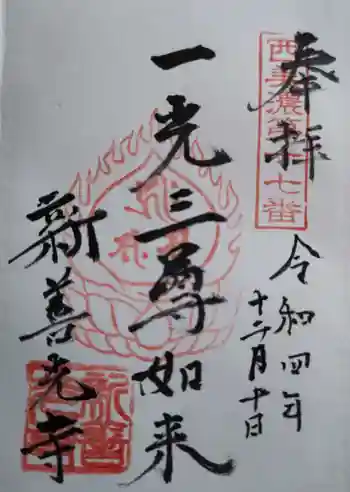 奉拝
西美濃第十七番
令和四年
十二月十日
一光三尊如来
新善光寺